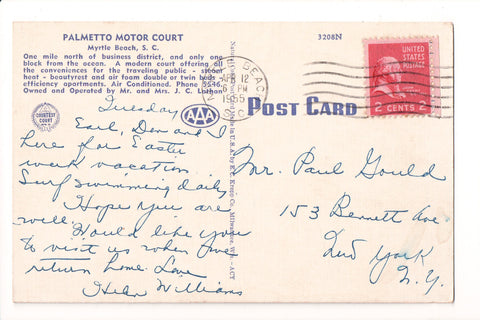 PALMETTO MOTOR COURT
Myrtle Beach, S. C.
One mile north of business district, and only one
block from the ocean. A modern court offering all
the conveniences for the traveling public - steam
heat - beautyrest and air foam double or twin beds -
efficiency apartments. Air Conditioned. Phone 5546.
Owned and Operated by Mr. and Mrs. J. C.
3208N
BEACH
APR 12
6 PM
1955
S.C.
UNITED
STATES
POSTAGE
2 CENTS 2
COURTESY
COURT
AAA
POST CARD
Made in U.S.A. by E. C. Kropp Co., Milwaukee, Wis. - ACT
Tuesday
Earl, Don and I
here for Easter
week vacation.
Surf swimming daily.
Hope you are
well. Would like you
to visit us when we
return home. Love
Helen Williams
Mr. Paul Gould
153 Bennett Ave
New York
N.Y.